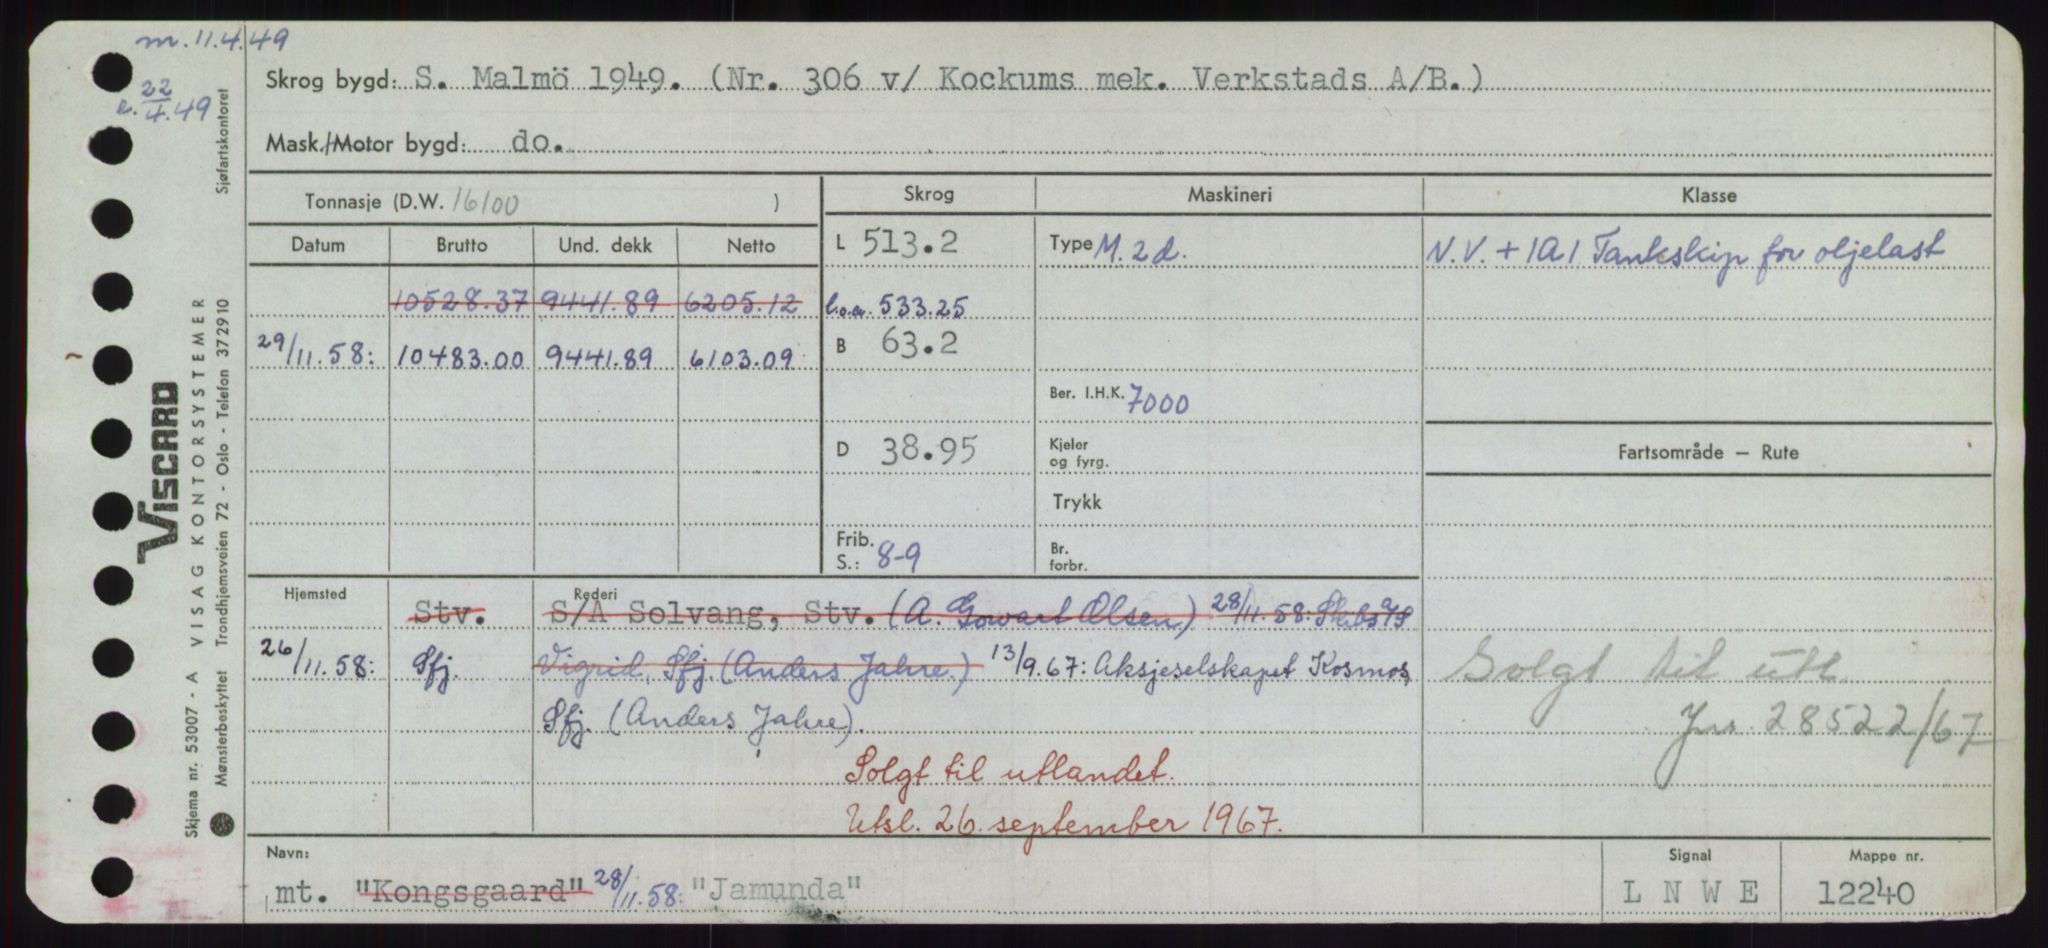 m. 11.4.49
e. 22/4.49
Skrog bygd: S. Malmö 1949. (Nr. 306 v/ Kockums mek. Verkstads A/B.)
Mask./Motor bygd: do.
Tonnasje (D.W. 16100 )
Skrog
Maskineri
Klasse
Datum Brutto Und. dekk Netto
L 513.2
Type M. 2 d.
N.V. + 1A1 Tankskip for oljelast
10528.37 9441.89 6205.12
l.o.a. 533.25
29/11.58: 10483.00 9441.89 6103.09
B 63.2
Ber. I.H.K. 7000
D 38.95
Kjeler
og fyrg.
Fartsområde — Rute
Trykk
Frib.
S.: 8-9
Br.
forbr.
Hjemsted
Rederi
Stv. S/A Solvang, Stv. (A. Gowart Olsen) 28/11.58: Skibs A/S
26/11.58: Sfj. Vigrid, Sfj. (Anders Jahre.) 13/9.67: Aksjeselskapet Kosmos,
Sfj. (Anders Jahre).
Solgt til utl.
Jnr. 28522/67
Solgt til utlandet.
Utsl. 26. september 1967.
Navn:
mt. "Kongsgaard" 28/11.58: "Jamunda"
Signal
L N W E
Mappe nr.
12240
VISCARD
VISAG KONTORSYSTEMER
Skjema nr. 53007 - A
Mønsterbeskyttet Trondhjemsveien 72 - Oslo - Telefon 372910 Sjøfartskontoret